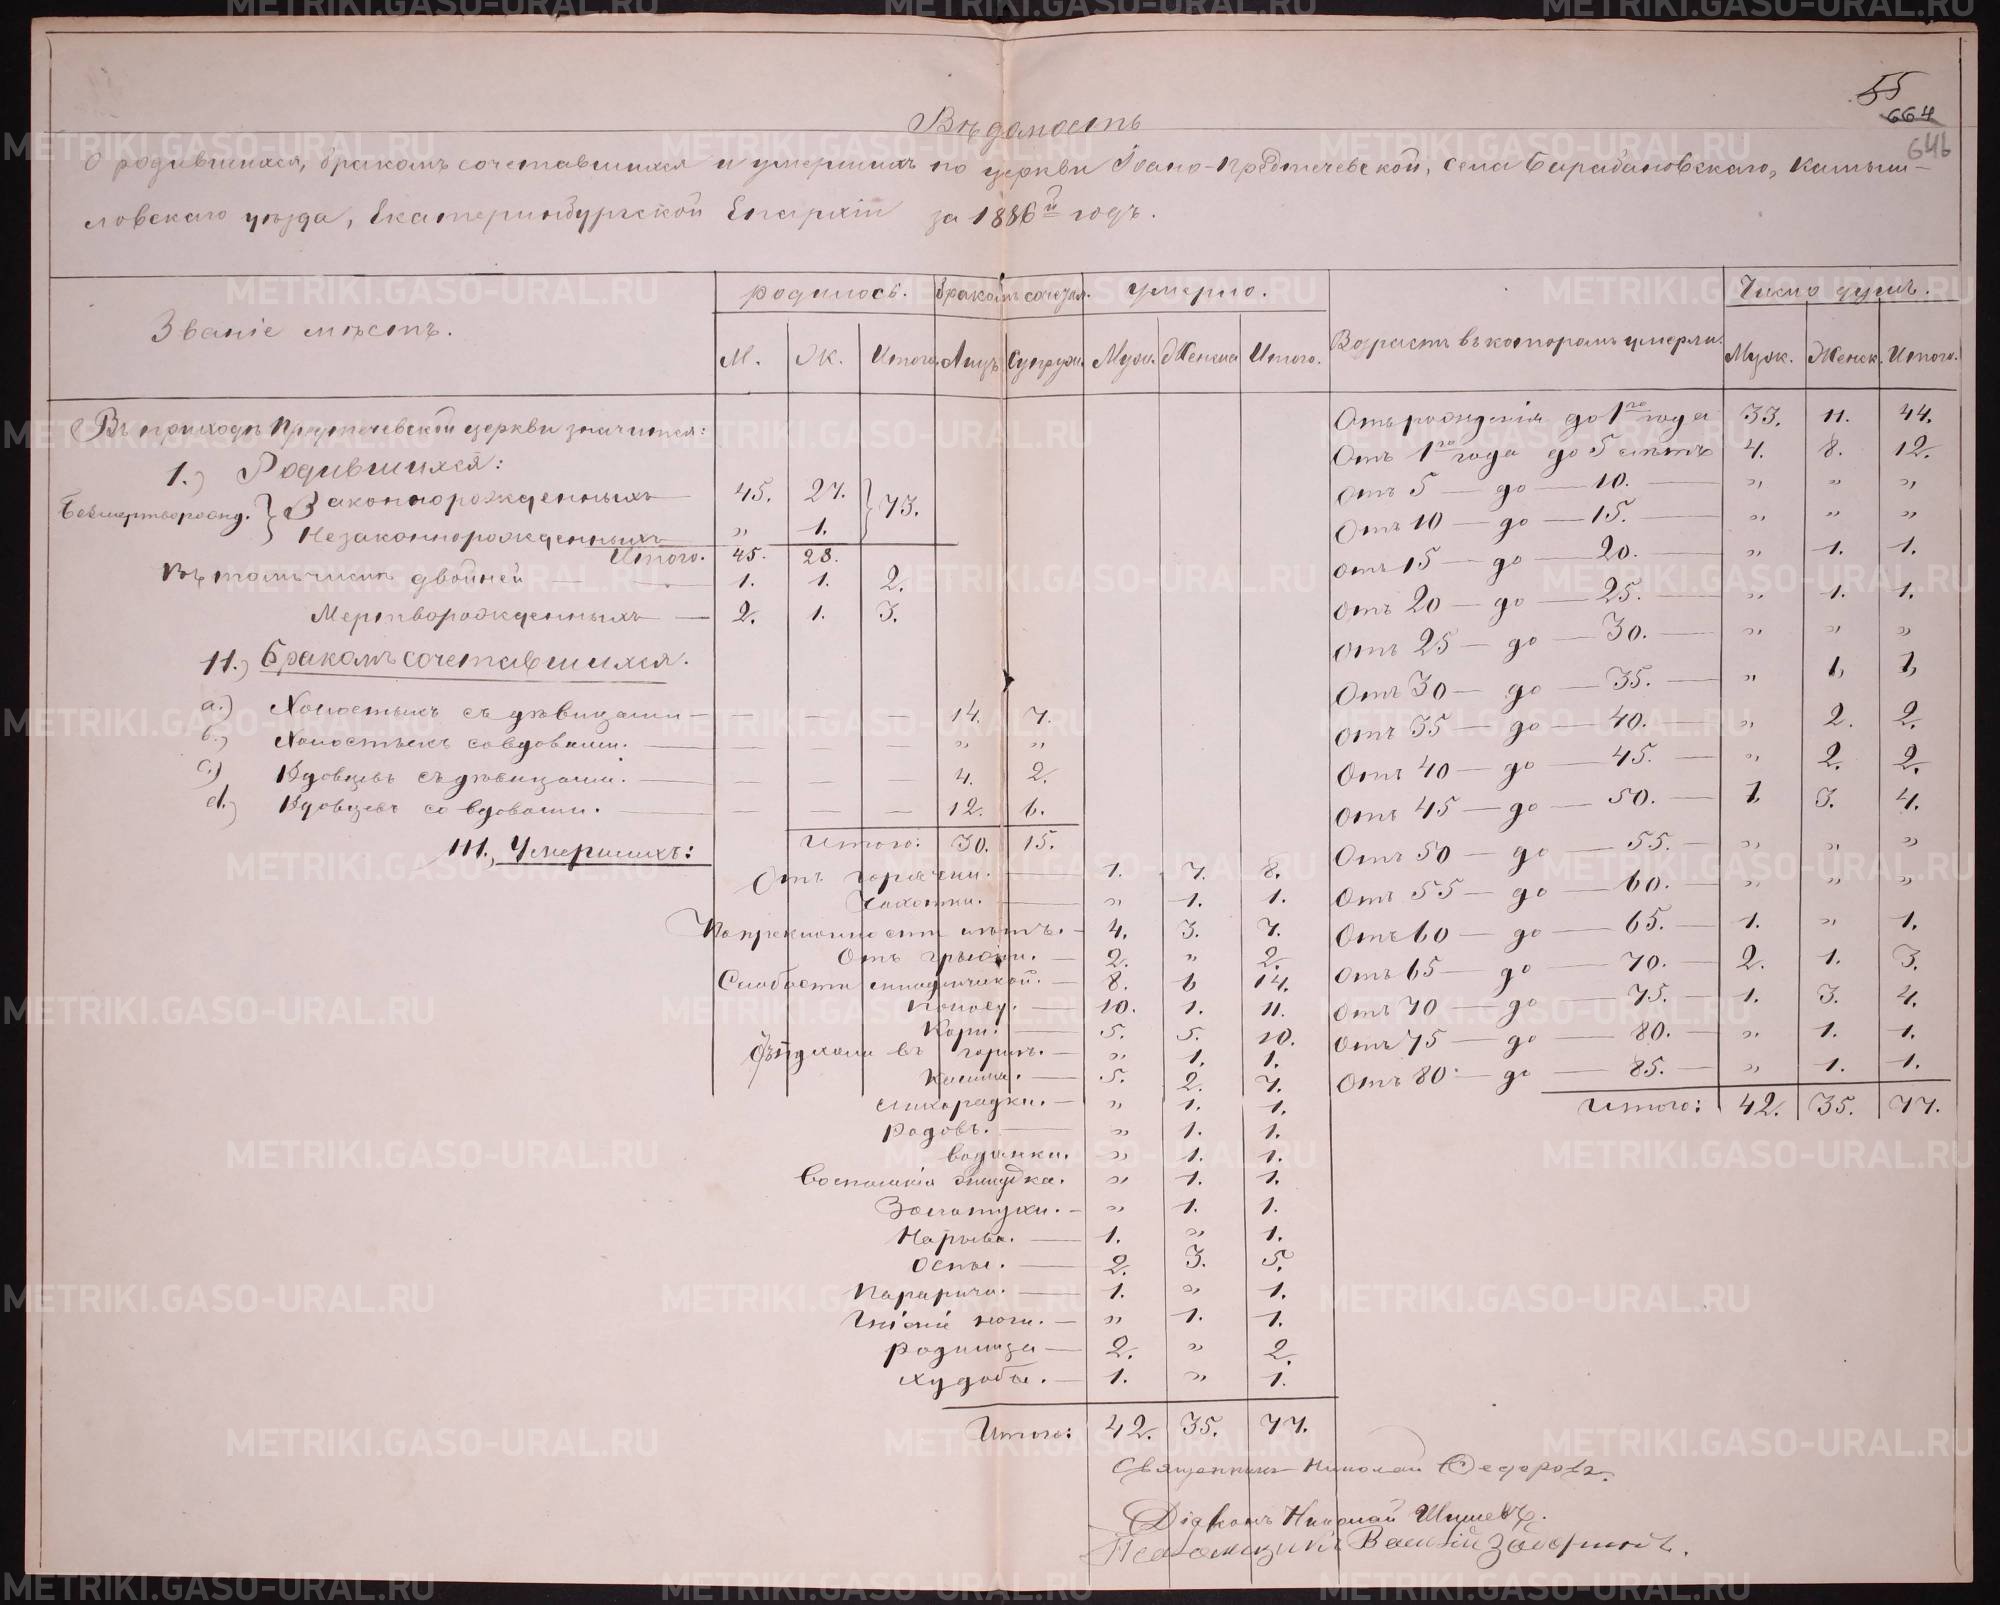 55
664
646
Вѣдомость
О родившихся, бракомъ сочетавшихся и умершихъ по церкви Іоано-Предтечевской, села Барабановскаго, Камыш-
ловскаго уѣзда, Екатеринбургской Епархіи за 1886й годъ.
Званіе мѣстъ. Родилось. Бракомъ сочетал. Умерло. Возрастъ въ которомъ умерли. Число душъ.
М. Ж. Итого. Лицъ Супруж. Муж. Женска Итого. Мужск. Женск. Итого.
Въ приходѣ Предтечевской церкви значится:
1.) Родившихся:
Безмертворожд. Законнорожденныхъ 45. 27. 73.
Незаконнорожденныхъ „ 1.
Итого. 45. 28.
Въ томъ числѣ двойней — 1. 1. 2.
Мертворожденныхъ — 2. 1. 3.
11.) Бракомъ сочетавшихся.
a.) Холостыхъ съ дѣвицами — — — — 14. 7.
б.) Холостыхъ со вдовами. — — — — „ „
c.) Вдовцевъ съ дѣвицами. — — — — 4. 2.
d.) Вдовцевъ со вдовами. — — — — 12. 6.
Итого: 30. 15.
111., Умершихъ:
Отъ горячки. — 1. 7. 8.
Чахотки. — „ 1. 1.
Преклонности лѣтъ. — 4. 3. 7.
Отъ грыжи. — 2. „ 2.
Слабости младенческой. — 8. 6 14.
Поносу. — 10. 1. 11.
Кори. — 5. 5. 10.
въ горлѣ. — „ 1. 1.
Кашля. — 5. 2. 7.
Лихорадки. — „ 1. 1.
Родовъ. — „ 1. 1.
Водянки. „ 1. 1.
Воспаленія желудка. „ 1. 1.
Золотухи. — „ 1. 1.
Нарыва. — 1. „ 1.
Оспы. — 2. 3. 5.
Паралича. — 1. „ 1.
Гніенія ноги. — „ 1. 1.
Родимца — 2. „ 2.
Худобы. — 1. „ 1.
Итого: 42. 35. 77.
Отъ рожденія до 1го года 33. 11. 44.
Отъ 1го года до 5 лѣтъ 4. 8. 12.
Отъ 5 — до — 10. — „ „ „
Отъ 10 — до — 15. — „ „ „
Отъ 15 — до — 20. — „ 1. 1.
Отъ 20 — до — 25. — „ 1. 1.
Отъ 25 — до — 30. — „ „ „
Отъ 30 — до — 35. — „ 1, 1,
Отъ 35 — до — 40. — „ 2. 2.
Отъ 40 — до — 45. — „ 2. 2.
Отъ 45 — до — 50. — 1. 3. 4.
Отъ 50 — до — 55. — „ „ „
Отъ 55 — до — 60. — „ „ „
Отъ 60 — до — 65. — 1. „ 1.
Отъ 65 — до — 70. — 2. 1. 3.
Отъ 70 — до — 75. — 1. 3. 4.
Отъ 75 — до — 80. — „ 1. 1.
Отъ 80 — до — 85. — „ 1. 1.
Итого: 42. 35. 77.
Священникъ Николай Ѳедоровъ.
Діаконъ Николай Шишевъ.
Псаломщикъ Василій
METRIKI.GASO-URAL.RU